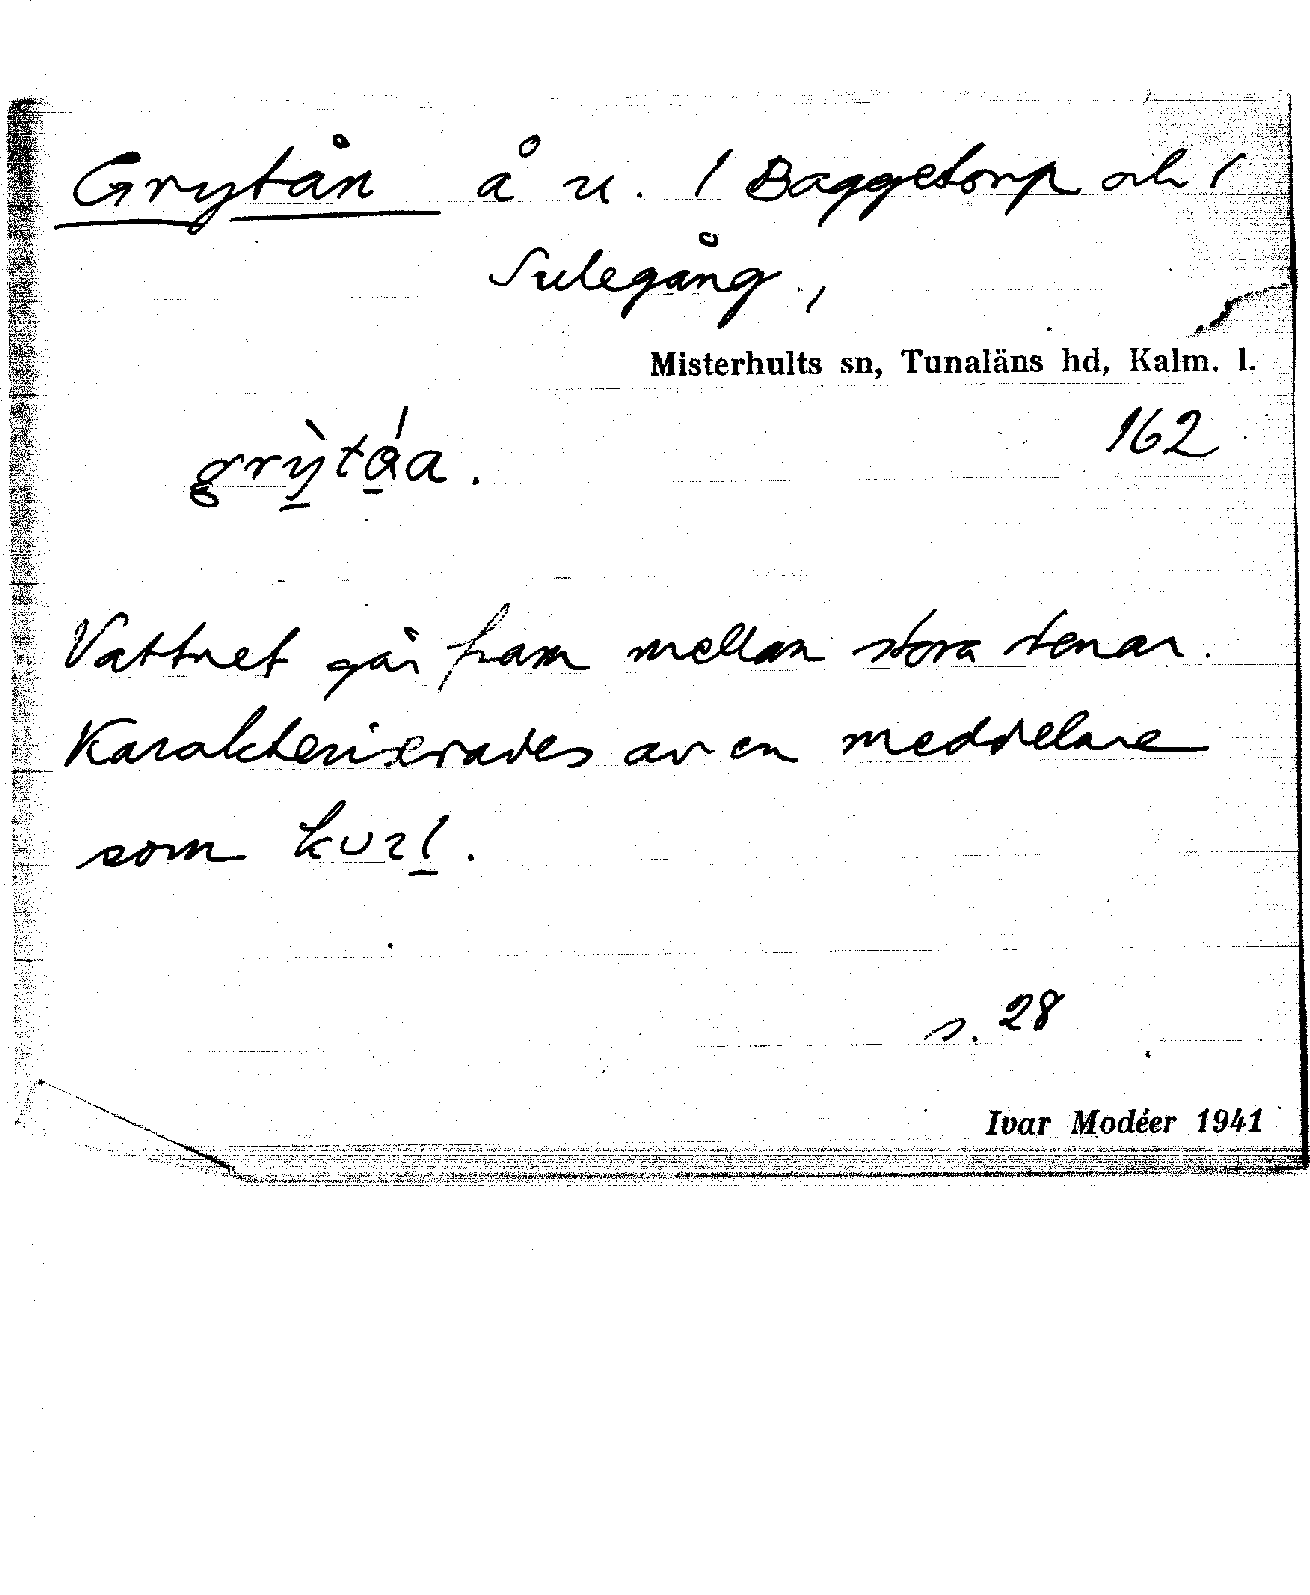 Grytån å u. / Baggetorp och /
Sulegång,
Misterhults sn, Tunaläns hd, Kalm. l.
162
Vattnet går fram mellan stora stenar.
Karakteriserades av en meddelare
som
s. 28
Ivar Modéer 1941